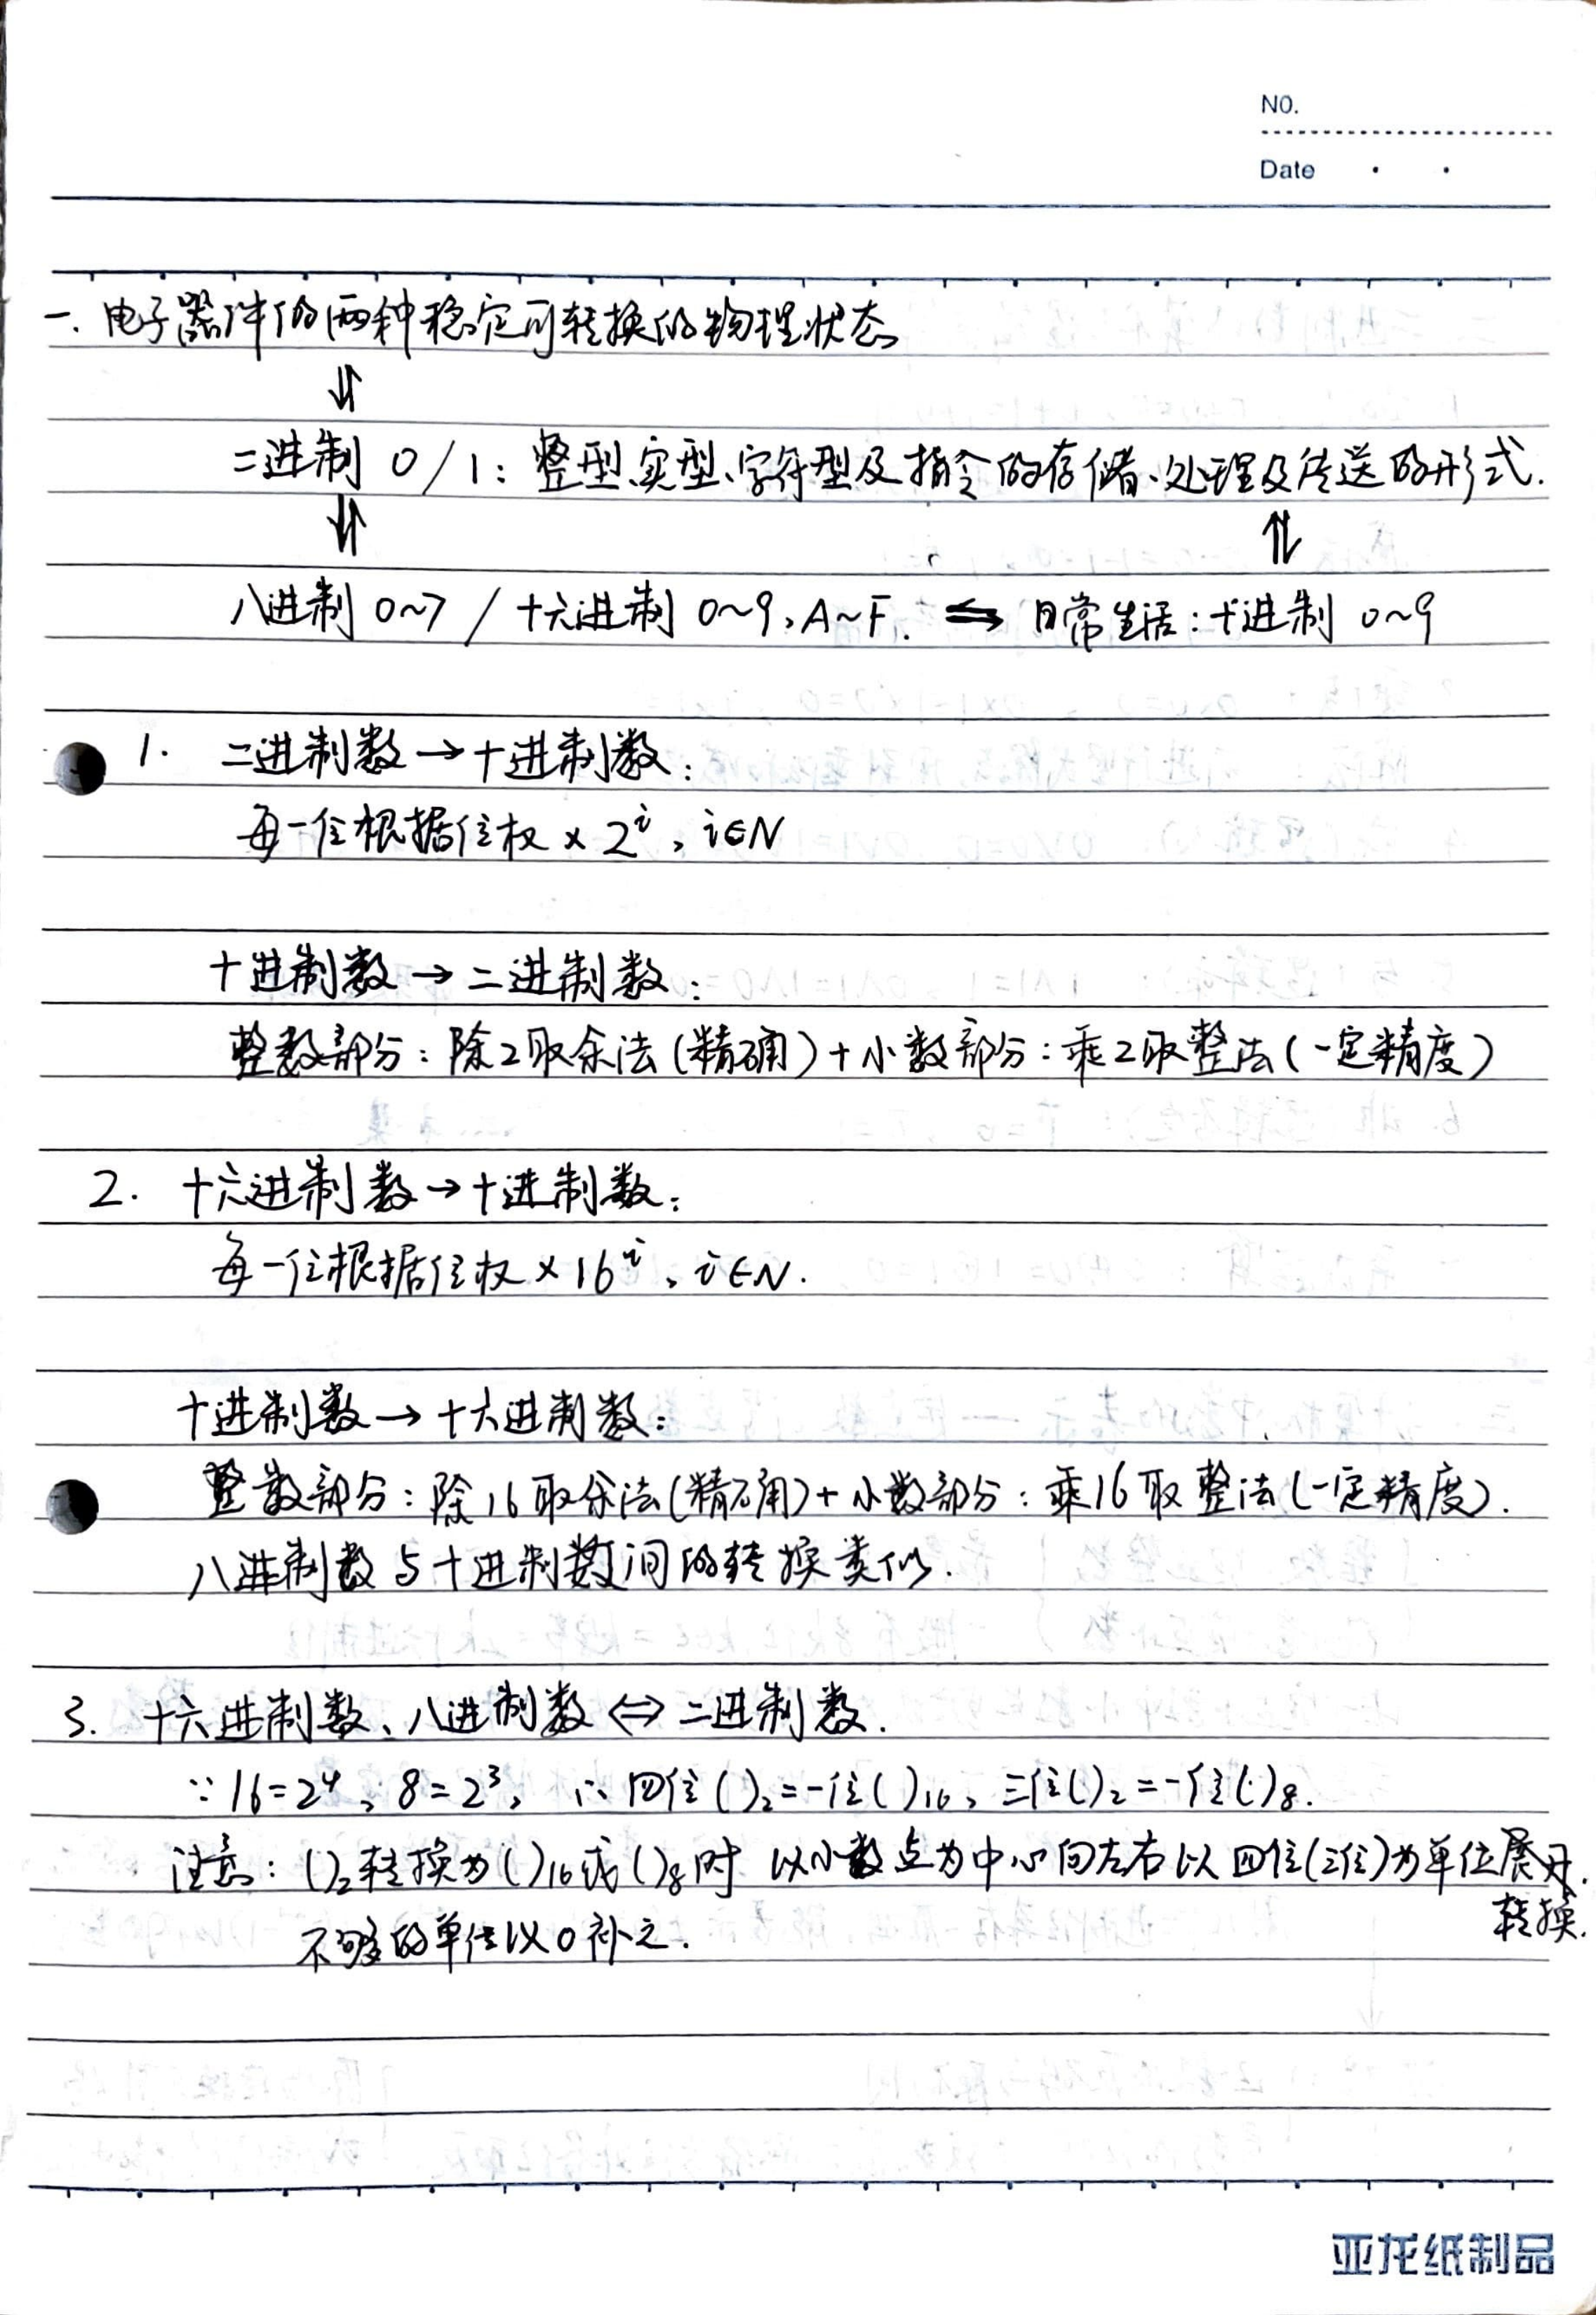 NO.
Date
一. 电子器件的两种稳定可转换的物理状态
⇅
二进制 0/1: 整型、实型、字符型及指令的存储、处理及传送的形式.
⇅ ⇅
八进制 0~7 / 十六进制 0~9, A~F. ⇋ 日常生活: 十进制 0~9
1. 二进制数→十进制数:
每一位根据位权×2ⁱ, i∈N
十进制数→二进制数:
整数部分: 除2取余法(精确)+小数部分: 乘2取整法(一定精度)
2. 十六进制数→十进制数:
每一位根据位权×16ⁱ, i∈N.
十进制数→十六进制数:
整数部分: 除16取余法(精确)+小数部分: 乘16取整法(一定精度).
八进制数与十进制数间的转换类似.
3. 十六进制数、八进制数⇔二进制数.
∵16=2⁴, 8=2³, ∴四位()₂=一位()₁₆, 三位()₂=一位()₈.
注意: ()₂转换为()₁₆或()₈时 以小数点为中心向左右以四位(三位)为单位展开.
转换.
不够的单位以0补之.
亚龙纸制品